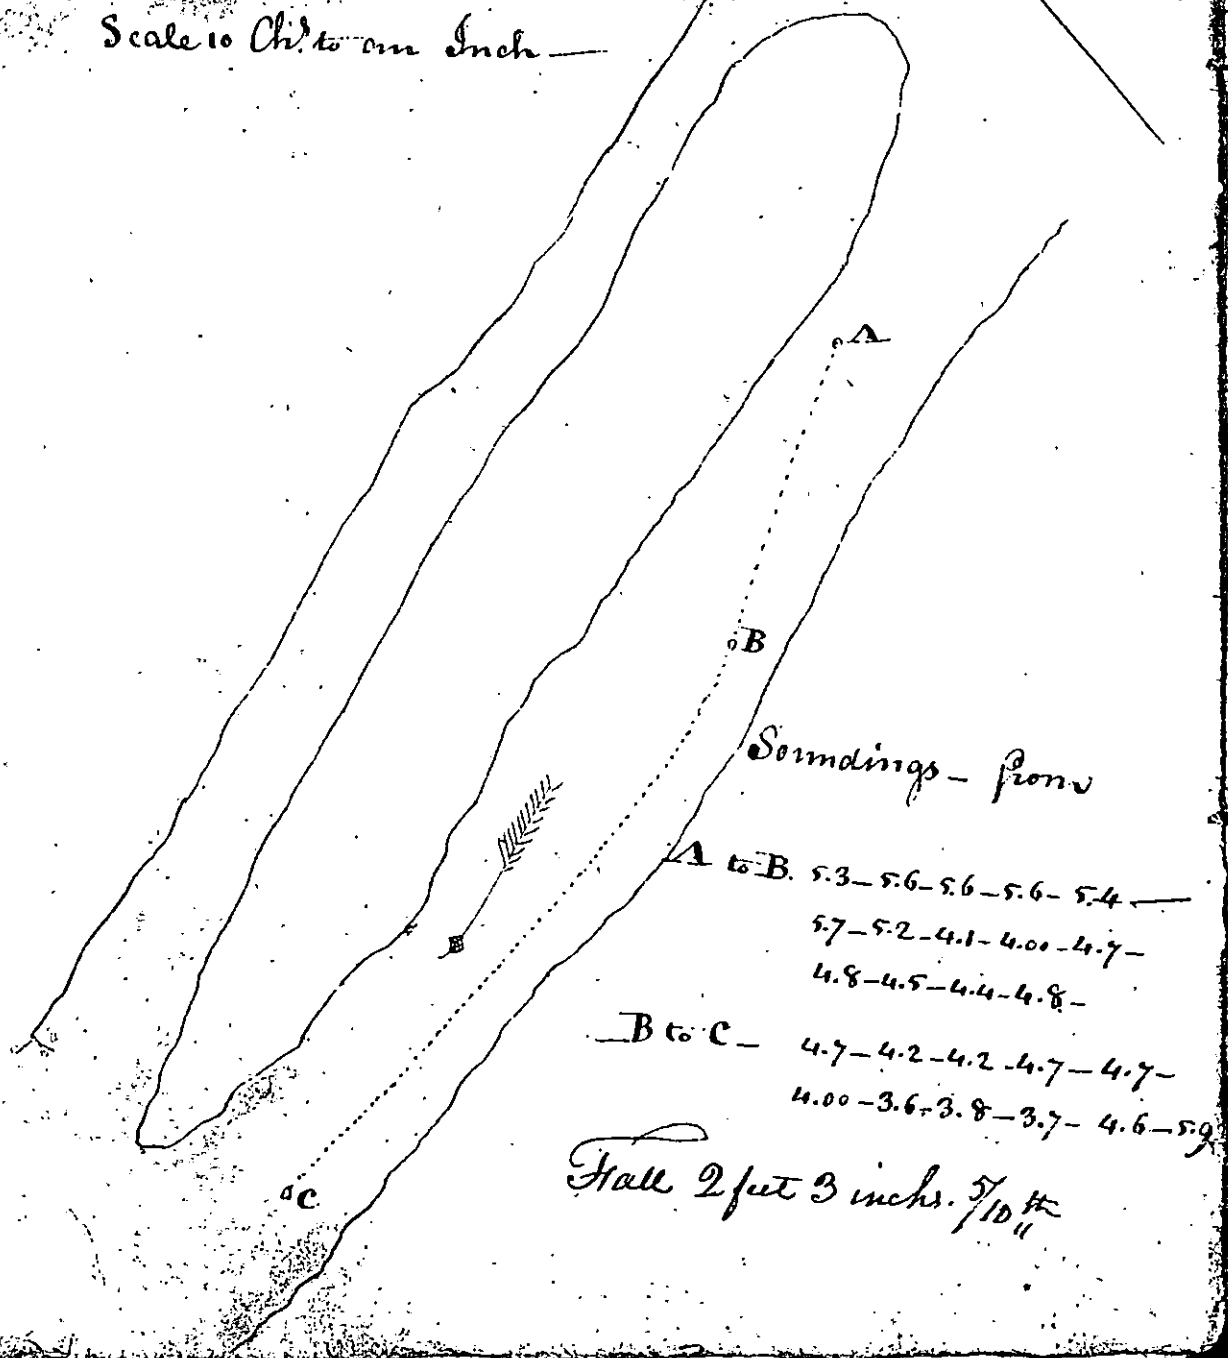 Scale 10 Chs. to an Inch —
A
B
Soundings – from
A to B. 5.3 – 5.6 – 5.6 – 5.6 – 5.4 —
5.7 – 5.2 – 4.1 – 4.00 – 4.7 –
4.8 – 4.5 – 4.4 – 4.8 –
B to C – 4.7 – 4.2 – 4.2 – 4.7 – 4.7 –
4.00 – 3.6 – 3.8 – 3.7 – 4.6 – 5.9
C
Fall 2 feet 3 inchs. 5/10th